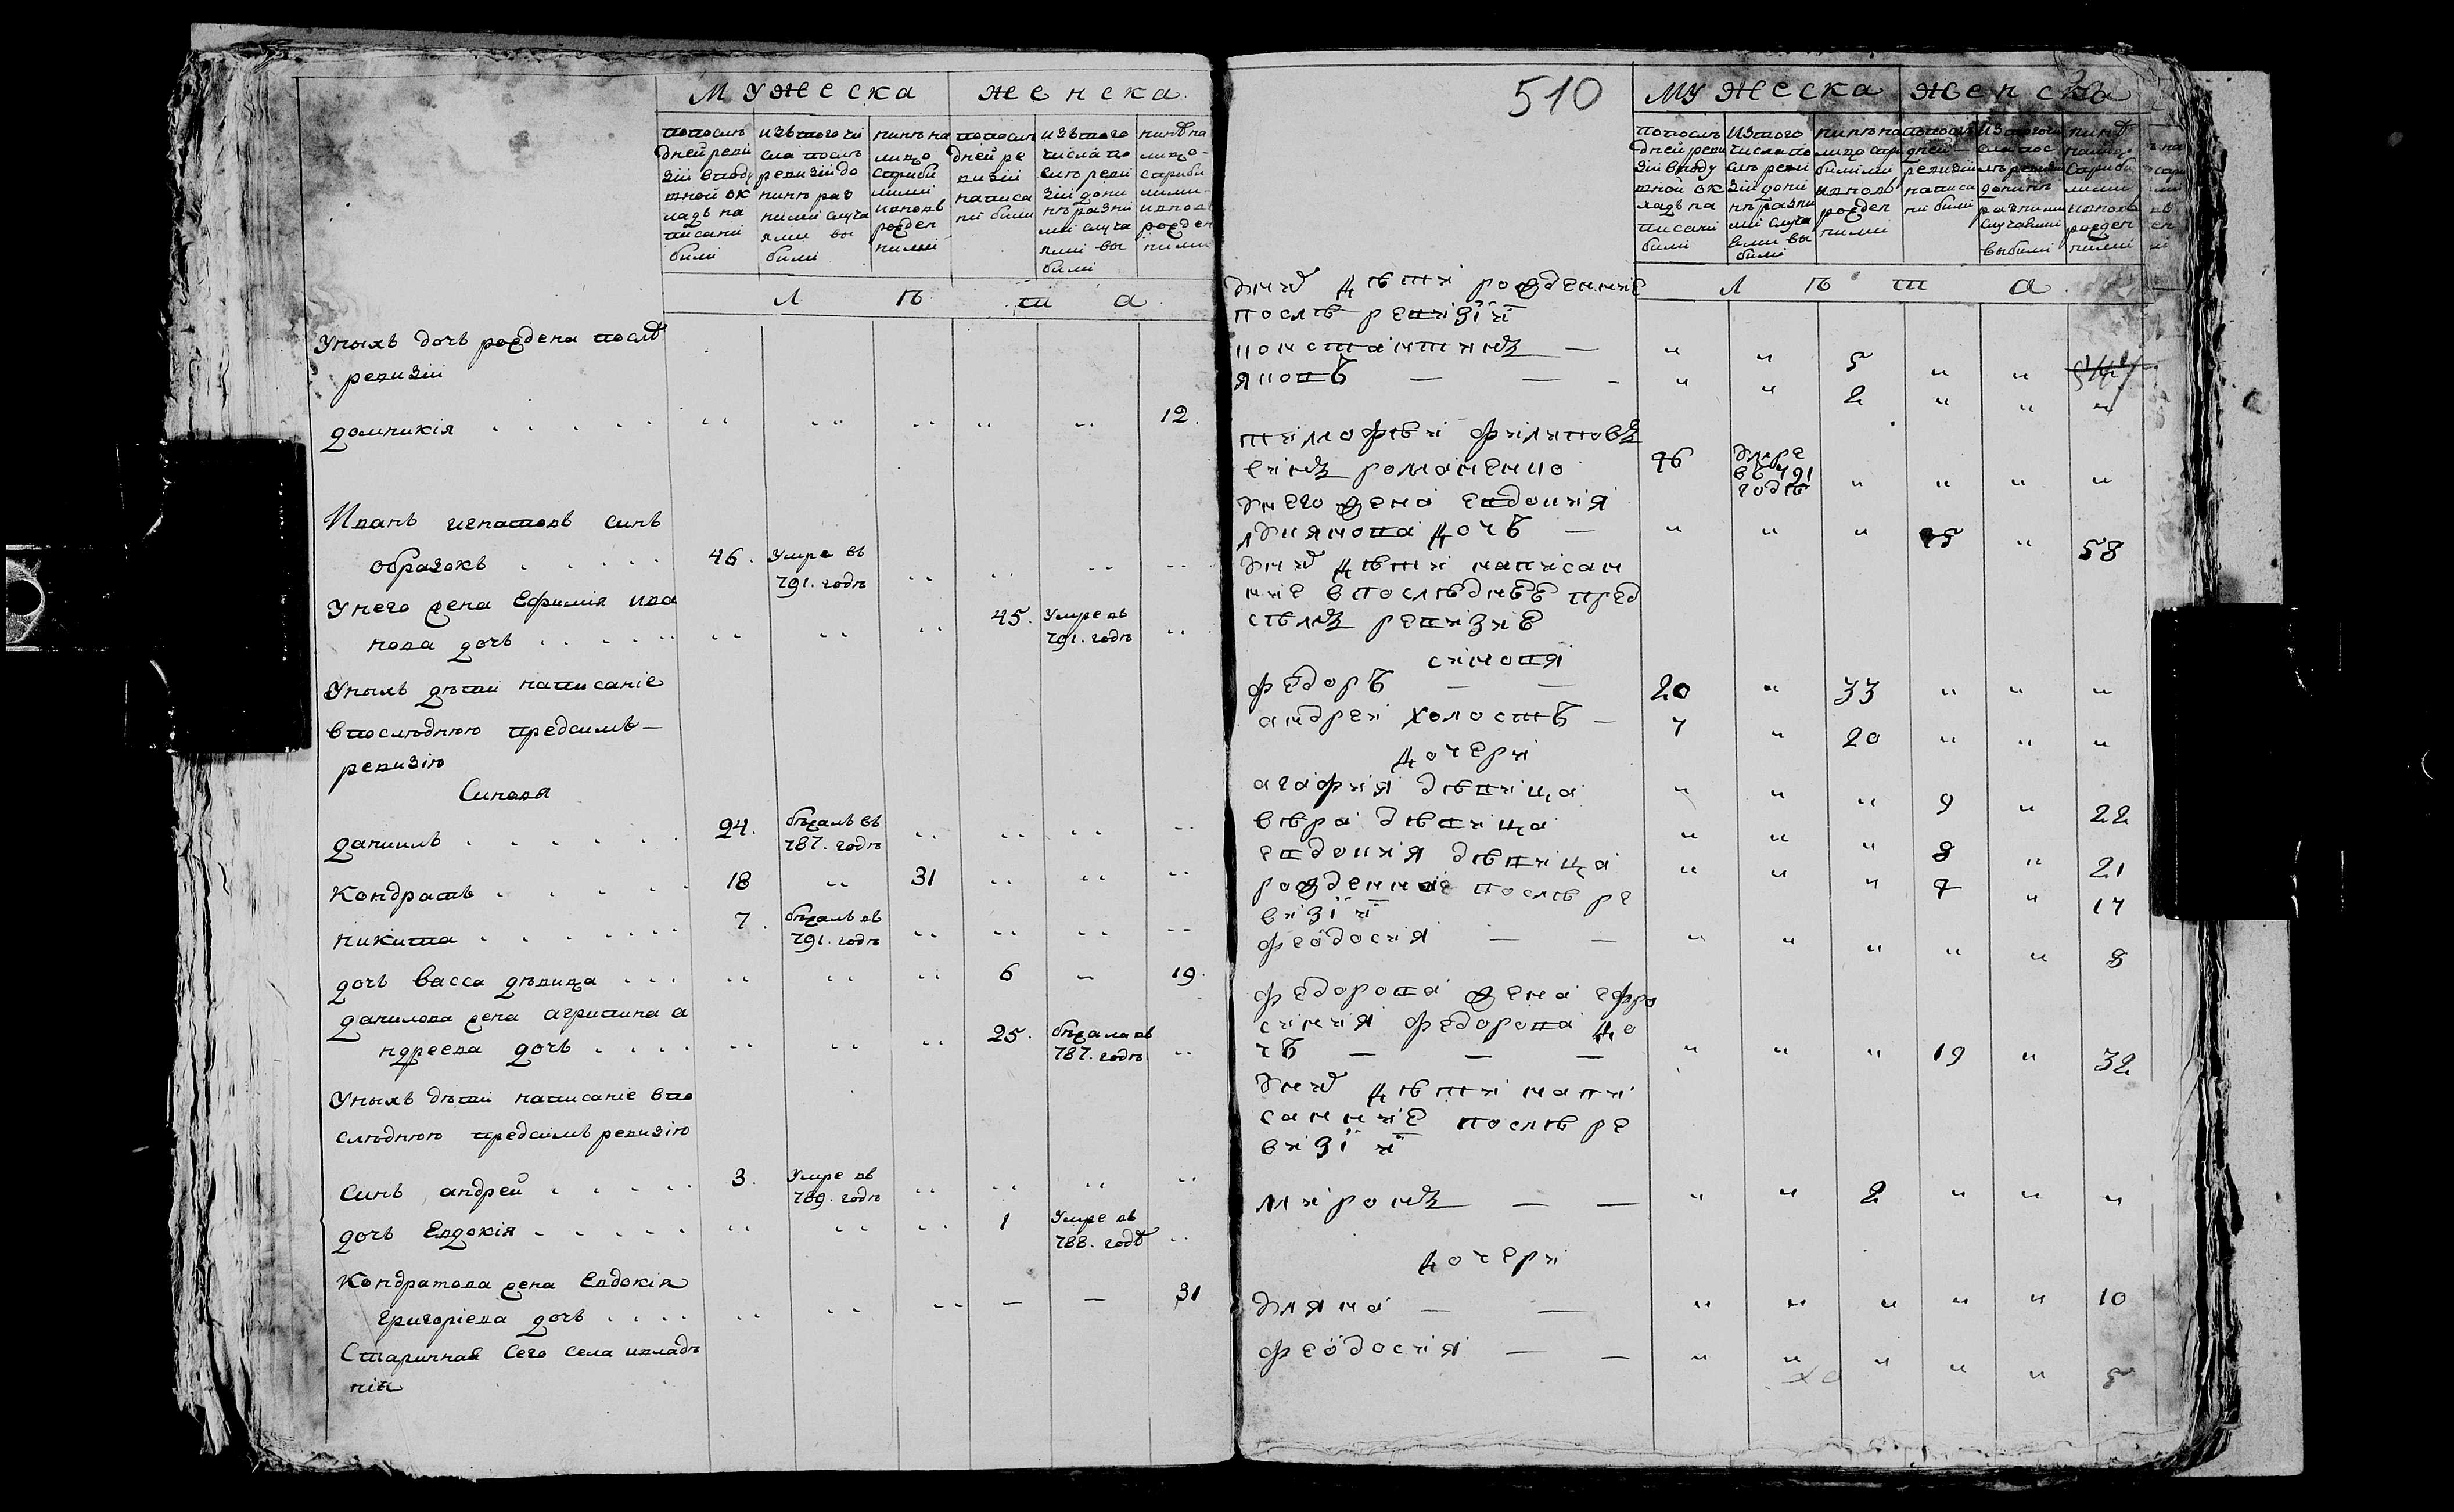 Мужеска Женска
попослѣ дней ревизіи вподушной окладъ написани били
изътого числа послѣ ревизіи до нинѣ разними случаями выбили
нинѣ налицо сприбилими ивновь рожденними
попослѣ дней ревизіи написани били
изътого числа послѣ ревизіи донинѣ разними случаями выбили
нинѣ налицо сприбилими ивновь рожденними
Л ѣ т а
Унихъ дочь рождена послѣ
ревизіи
домникія 12.
Иванъ игнатовъ синъ
образокъ 46. Умре въ
791. годѣ
Унего жена Ефимія ива
нова дочь 45. Умре въ
791. годѣ
Унихъ дѣти написаніе
впослюднюю предсимъ
ревизію
Синовя
даниилъ 24. бѣжалъ въ
787. годѣ
Кондратъ 18 31
никита 7. бѣжалъ въ
791. годѣ
дочь васса дѣвица 6 19.
данилова жена агрипина а
ндреева дочь 25. бѣжала въ
787. годѣ
Унихъ дѣти написаніе впо
слюднюю предсимъ ревизію
Синъ андрей 3. Умре въ
789. годѣ
дочь Евдокія 1 Умре въ
788. годѣ
Кондратова жена Евдокія
григоріева дочь 31
Старичная Сего села ивладѣ
нія
510
Мужеска Женска
попослѣ дней ревизіи вподушной окладъ написани били
Изтого числа послѣ ревизіи донинѣ разними случаями выбили
нинѣ налицо сприбилими ивновь рожденними
попослѣ дней ревизіи написани били
Изтого числа послѣ ревизіи донинѣ разними случайми выбили
нинѣ налицо сприбилими ивновь рожденними
Л ѣ т а
уних дѣти рожденніе
послѣ ревизіи
константинъ 5
яковъ 2
тимофѣи филиповъ
синъ романенко 46 умре
въ 791
годѣ
унего жена евдокия
лукянова дочъ 45 58
уних дѣти написан
ние впослѣднѣе пред
сѣмъ ревизие
синовя
федоръ 20 33
андреи холостъ 7 20
дочери
агафия дѣвица 9 22
вѣра дѣвица 8 21
евдокия дѣвица 4 17
рожденное послѣ ре
визіи
феодосия 8
федорова жена ефро
синия федорова до
чъ 19 32
уних дѣти напи
санние послѣ ре
визіи
миронъ 2
дочери
уляна 10
феодосия 5